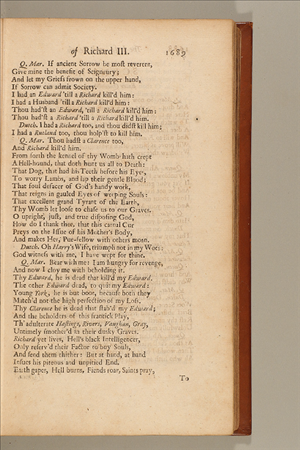 of Richard III. 1689
Q. Mar. If ancient Sorrow be most reverent,
Give mine the benefit of Seigneury;
And let my Griefs frown on the upper hand,
If Sorrow can admit Society.
I had an Edward 'till a Richard kill'd him:
I had a Husband 'till a Richard kill'd him:
Thou had'st an Edward, 'till a Richard kill'd him:
Thou had'st a Richard 'till a Richard kill'd him.
Dutch. I had a Richard too, and thou didst kill him;
I had a Rutland too, thou holp'st to kill him.
Q. Mar. Thou hadst a Clarence too,
And Richard kill'd him.
From forth the kennel of thy Womb hath crept
A Hell-hound, that doth hunt us all to Death:
That Dog, that had his Teeth before his Eyes,
To worry Lambs, and lap their gentle Blood:
That foul defacer of God's handy work,
That reigns in gauled Eyes of weeping Souls:
That excellent grand Tyrant of the Earth,
Thy Womb let loose to chase us to our Graves.
O upright, just, and true disposing God,
How do I thank thee, that this carnal Cur
Preys on the Issue of his Mother's Body,
And makes Her, Pue-fellow with others moan.
Dutch. Oh Harry's Wife, triumph not in my Woes:
God witness with me, I have wept for thine.
Q. Mar. Bear with me: I am hungry for revenge,
And now I cloy me with beholding it.
Thy Edward, he is dead that kill'd my Edward,
The other Edward dead, to quit my Edward:
Young York, he is but boot, because both they
Match'd not the high perfection of my Loss.
Thy Clarence he is dead that stab'd my Edward;
And the beholders of this frantick Play,
Th'adulterate Hastings, Rivers, Vaughan, Gray,
Untimely smother'd in their dusky Graves.
Richard yet lives, Hell's black Intelligencer,
Only reserv'd their Factor to buy Souls,
And send them thither: But at hand, at hand
Insues his piteous and unpitied End.
Earth gapes, Hell burns, Fiends roar, Saints pray,
To